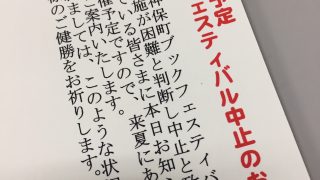 予定
ェスティバル中止のお
神保町ブックフェスティバ
施が困難と判断し中止と致
ている皆さまに本日お知
催予定ですので、来夏にあ
ご案内いたします。
ましては、このような状況
のご健勝をお祈りします。